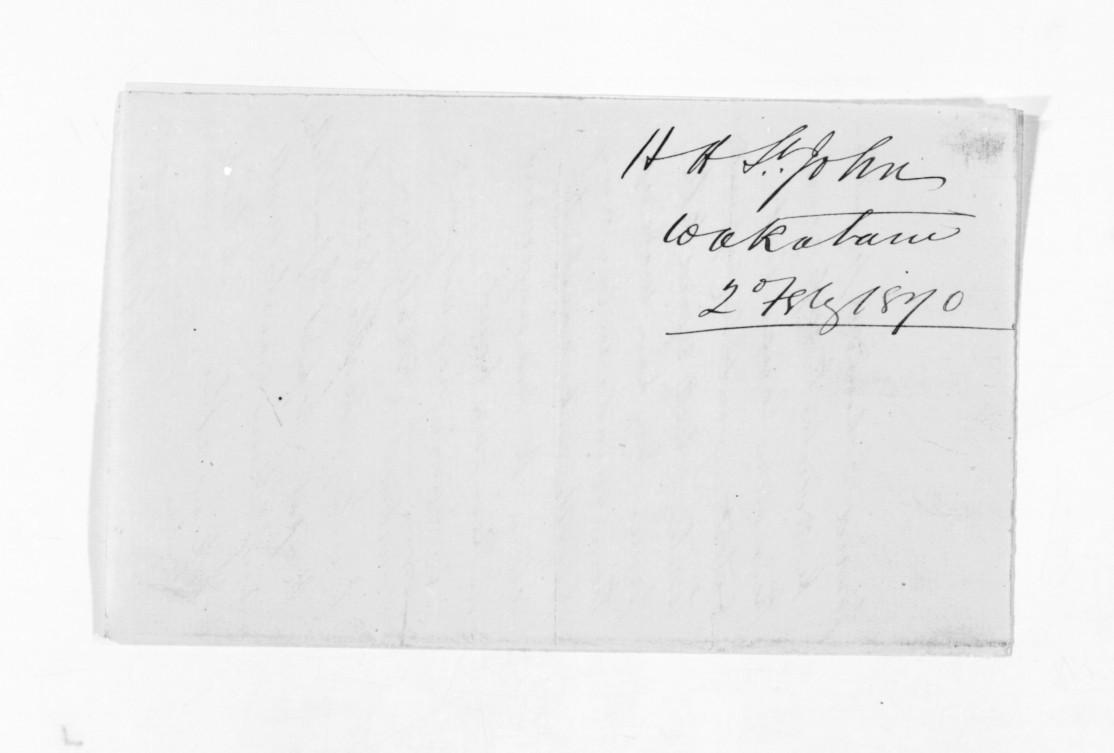 H H St. John
Wakatane
2° Feby 1870